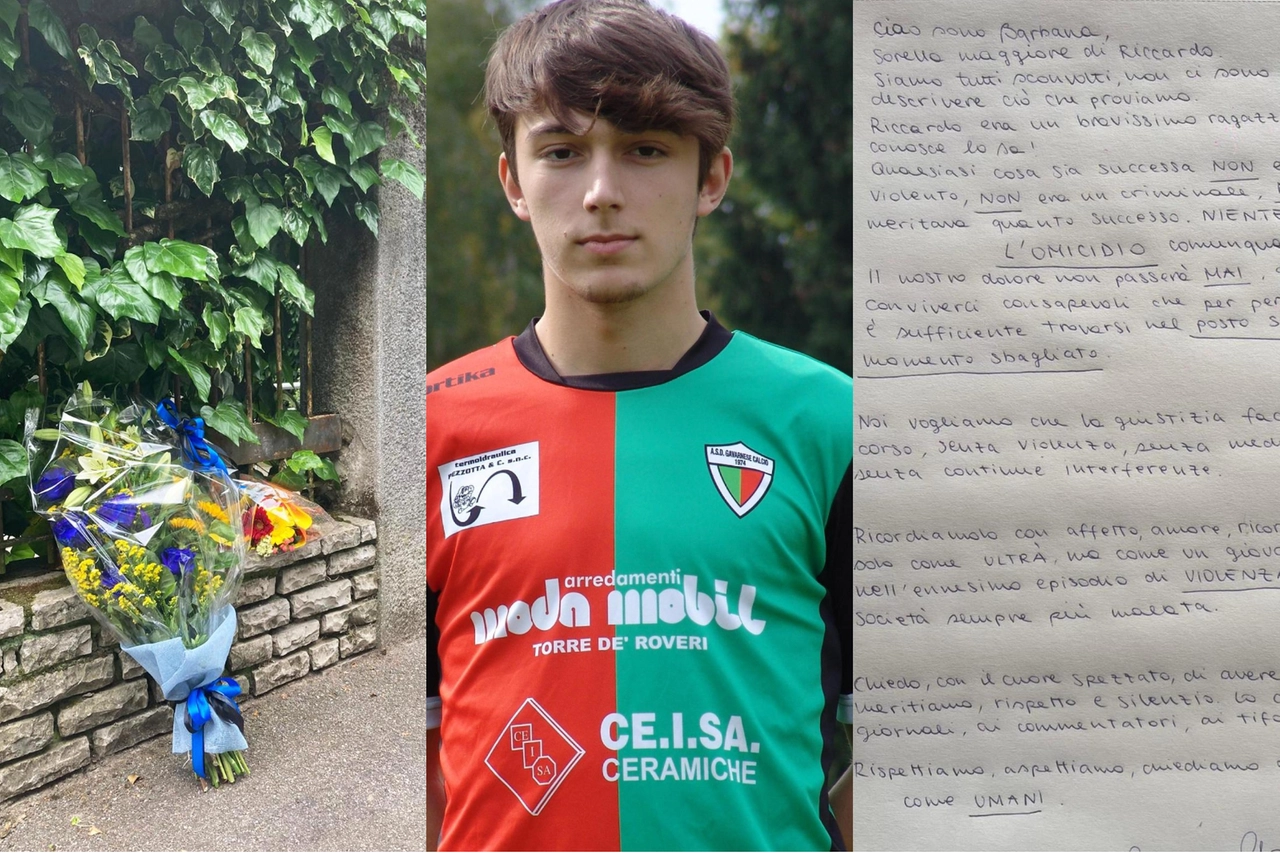 ortika
termoidraulica
PEZZOTTA & C. s.n.c.
A.S.D. GAVARNESE CALCIO
1974
arredamenti
moda mobil
TORRE DE' ROVERI
CE
I
SA
CE.I.SA.
CERAMICHE
Ciao sono Barbara,
sorella maggiore di Riccardo.
Siamo tutti sconvolti, non ci sono
descrivere ciò che proviamo.
Riccardo era un bravissimo ragazz
conosce lo sa!
Qualsiasi cosa sia successa NON e
violento, NON era un criminale,
meritava quanto successo. NIENTE
L'OMICIDIO comunqu
Il nostro dolore non passerà MAI,
conviverci consapevoli che per per
è sufficiente trovarsi nel posto s
momento sbagliato.
Noi vogliamo che la giustizia fac
corso senza violenza, senza med
senza continue interferenze
Ricordiamolo con affetto, amore, rico
solo come ULTRÀ, ma come un giov
nell'ennesimo episodio di VIOLENZA
società sempre più malata.
Chiedo, con il cuore spezzato, di avere
meritiamo, rispetto e silenzio. Lo
giornali, ai commentatori, ai tifo
Rispettiamo, aspettiamo, chiediamo
come UMANI.